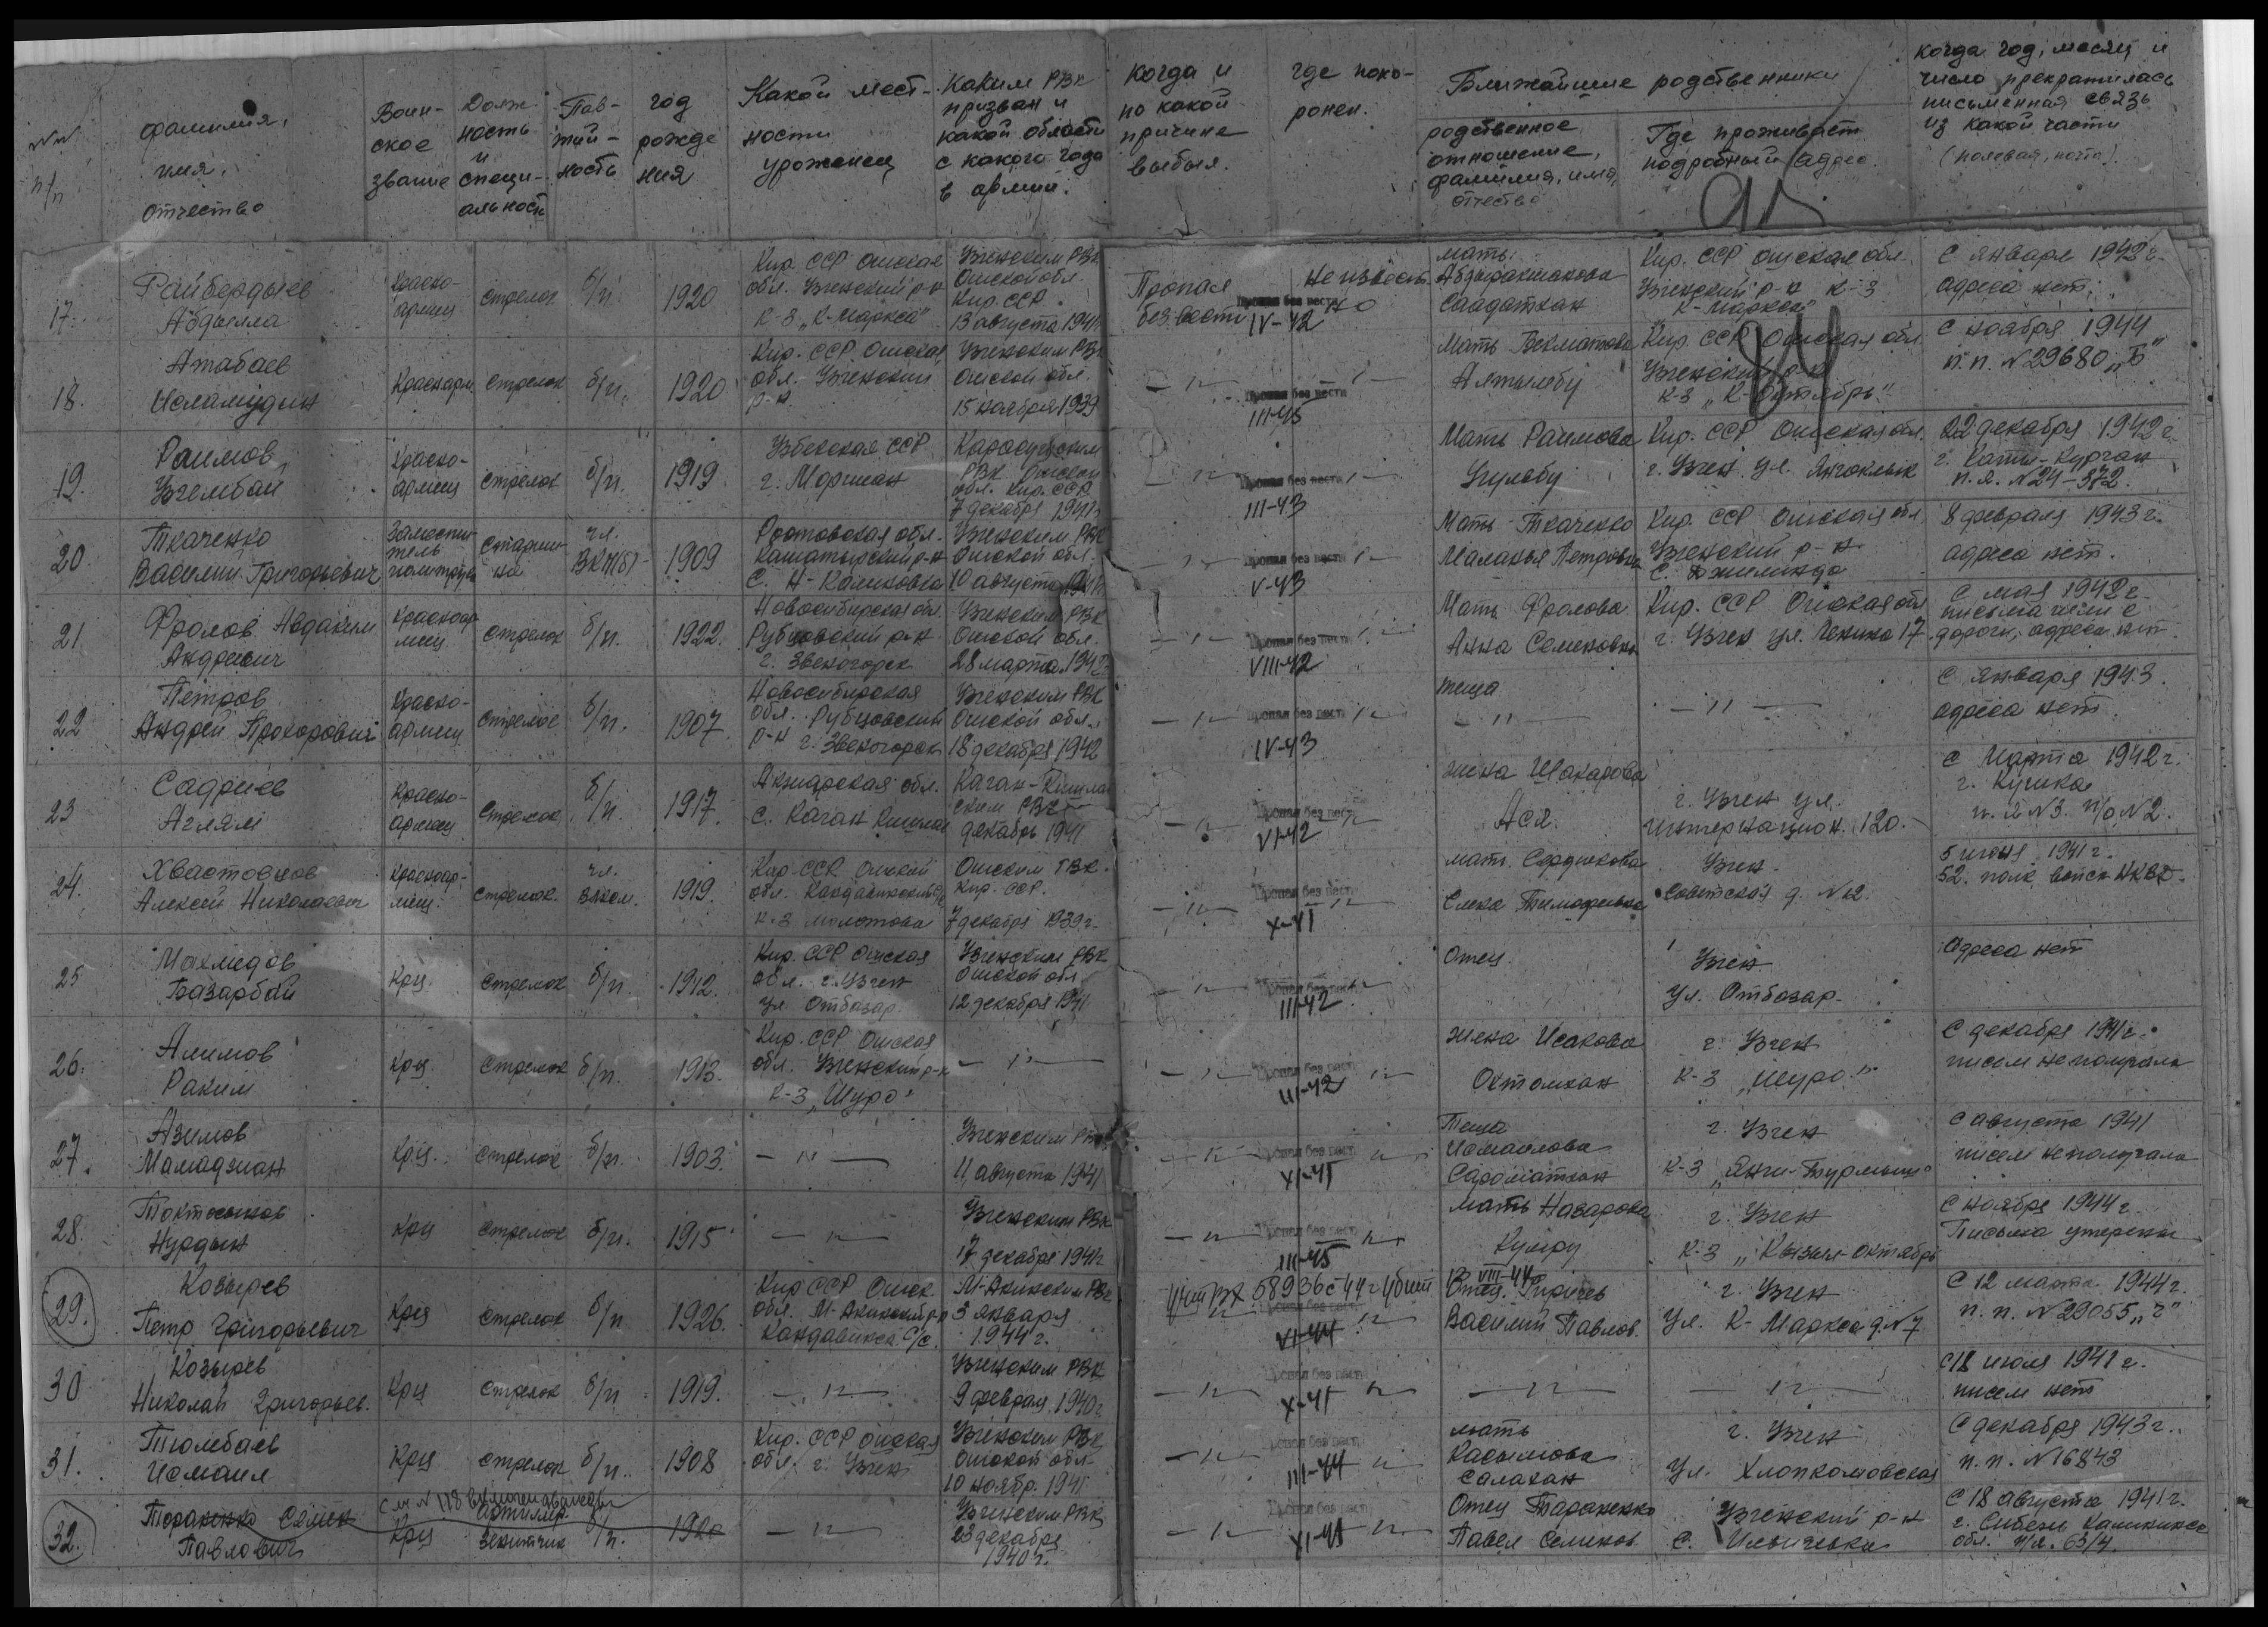 №№ п/п
фамилия, имя, отчество
Воин- ское звание
Долж- ность и специ- альность
Пар- тий- ность
год рожде ния
Какой мест- ности уроженец
Каким РВК призван и какой области с какого года в армии.
когда и по какой причине выбыл.
где похо- ронен.
Ближайшие родственники
родственное отношение, фамилия, имя, отчество
Где проживает подробный адрес.
когда год, месяц и число прекратилась письменная связь из какой части (полевая, почта).
17. Райбердыев Абдылла
Красно- армец
стрелок
б/п.
1920
Кир. ССР Ошская обл. Узгенский р-н к-з „К-Маркса"
Узгенским РВК Ошской обл. Кир. ССР. 13 августа 1941г
Пропал без вести
Пропал без вести IV-42
Не известно
мать. Саадатхан
Кир. ССР Ошская обл. Узгенский р-н к-з К-Маркса
С января 1942 г. адреса нет.
18. Атабаев Исламудин
Красноарм.
стрелок
б/п.
1920
Кир. ССР. Ошская обл. Узгенский р-н.
Узгенским РВК Ошской обл. 15 ноября 1939
— 〃 —
Пропал без вести III-45
Мать Бекматова
Кир. ССР Ошская обл. Узгенский р-н к-з „К-Октябрь"
С ноября 1944 п.п. № 29680 „Б"
19. Раимов Узгембай
Красно- армец
стрелок
б/п.
1919
Узбекская ССР г. Моргилан
Карасуйским РВК Ошской обл. Кир. ССР 7 декабря 1941г
— 〃 —
Пропал без вести III-43
Мать Раимова Угулбу
Кир. ССР Ошская обл. г. Узген ул.
22 декабря 1942 г. г. Каты-Курган п.я. № 24-372.
20. Ткаченко Василий Григорьевич
Замести- тель политрука
Старши- на
чл. ВКП(б)
1909
Ростовская обл. р-н С. Н-Калиновка
Узгенским РВК Ошской обл. 10 августа 1941г
— 〃 —
Пропал без вести V-43
Мать Ткаченко Маланья Петровна
Кир. ССР Ошская обл. Узгенский р-н С.
8 февраля 1943 г. адреса нет.
21. Фролов Авдаким Андреевич
Красноар мец
стрелок
б/п.
1922.
Новосибирская обл. Рубцовский р-н г. Звеногорск
Узгенским РВК Ошской обл. 28 марта 1942
— 〃 —
Пропал без вести VIII-42
Мать Фролова Анна Семеновна
Кир. ССР Ошская обл г. Узген ул. Ленина 17
С мая 1942 г. письма шли с дороги, адреса нет.
22 Петров Андрей Прохорович
Красно- армец
стрелок
б/п.
1907.
Новосибирская обл. Рубцовский р-н г. Звеногорск
Узгенским РВК Ошской обл. 18 декабря 1942
— 〃 —
Пропал без вести IV-43
теща — 〃 —
— 〃 —
С января 1943. адреса нет.
23 Садриев Аглям
Красно- армец
Стрелок
б/п.
1917.
обл. С. Каган Кишлак
Каган-Кишлак ским РВК декабрь 1941
— 〃 —
Пропал без вести VI-42
жена Шакарова Ася.
г. Узген ул. Интернацион. 120.
С Марта 1942 г. г. Кушка п.я №3. п/о №2.
24. Хвастовцов Алексей Николаевич
Красноар- мец.
Стрелок.
чл. ВЛКСМ.
1919.
Кир. ССР Ошской обл. к-з Молотова
Ошским ГВК. Кир. ССР. 7 декабря 1939 г.
— 〃 —
Пропал без вести X-41
мать Сердюкова Тимофеевна
Узген. Советской д. № 2.
5 июня 1941 г. 52. полк войск НКВД.
25 Махмедов Базарбай
Крц.
Стрелок
б/п.
1912.
Кир. ССР Ошская обл. г. Узген ул. Отбазар.
Узгенским РВК Ошской обл 12 декабря 1941
— 〃 —
Пропал без вести III-42
Отец.
Узген. Ул. Отбазар.
Адреса нет
26. Алимов Раким
Крц
Стрелок
б/п.
1913.
Кир. ССР Ошская обл. Узгенский р-н к-з „Шуро"
— 〃 —
— 〃 —
Пропал без вести III-42
жена Исакова Октомхан
г. Узген к-з „Шуро"
С декабря 1941 г. писем не получала
27. Азимов Мамаджан
Крц.
Стрелок
б/п.
1903.
— 〃 —
Узгенским РВК 11 августа 1941
— 〃 —
Пропал без вести XI-41
Теща Исмаилова
г. Узген к-з „Янги-Турмыш"
С августа 1941 писем не получала
28. Токтосынов Нурдын
Крц
Стрелок
б/п.
1915
— 〃 —
Узгенским РВК 17 декабря 1941г
— 〃 —
Пропал без вести III-45
Мать Назарова
г. Узген к-з „Кызыл-Октябрь
С ноября 1944 г. Письма утеряны
29. Козырев Петр Григорьевич
Крц
стрелок
б/п
1926.
Кир ССР Ошск. обл. с/с.
РВК 3 января 1944 г.
58936с-44г убит VIII-44
Пропал без вести VI-44
Отец. Василий Павлов.
г. Узген Ул. К-Маркса д. № 7
С 12 марта 1944 г. п.п. № 29055 „г"
30 Козырев Николай Григорьев.
Крц
стрелок
б/п
1919.
— 〃 —
Узгенским РВК 9 февраля 1940 г
— 〃 —
Пропал без вести X-41
— 〃 —
— 〃 —
с 18 июля 1941 г. писем нет
31. Тюлебаев Исмаил
Крц
стрелок
б/п.
1908
Кир. ССР Ошская обл. г. Узген
Узгенским РВК Ошской обл. 10 ноябр. 1941
— 〃 —
Пропал без вести III-44
мать Касымова Салахан
г. Узген Ул. Хлопкомовская
С декабря 1943 г. п.п. № 16843
см № 118
32. Тараненко Семен Павлович
Крц
артиллер. зенитчик
б/п.
1920
— 〃 —
Узгенским РВК 23 декабря 1940 г.
— 〃 —
Пропал без вести XI-41
Отец Тараненко Павел Семенов.
Узгенский р-н С. Ильичевка
С 18 августа 1941 г. обл. п/я. 63/4.